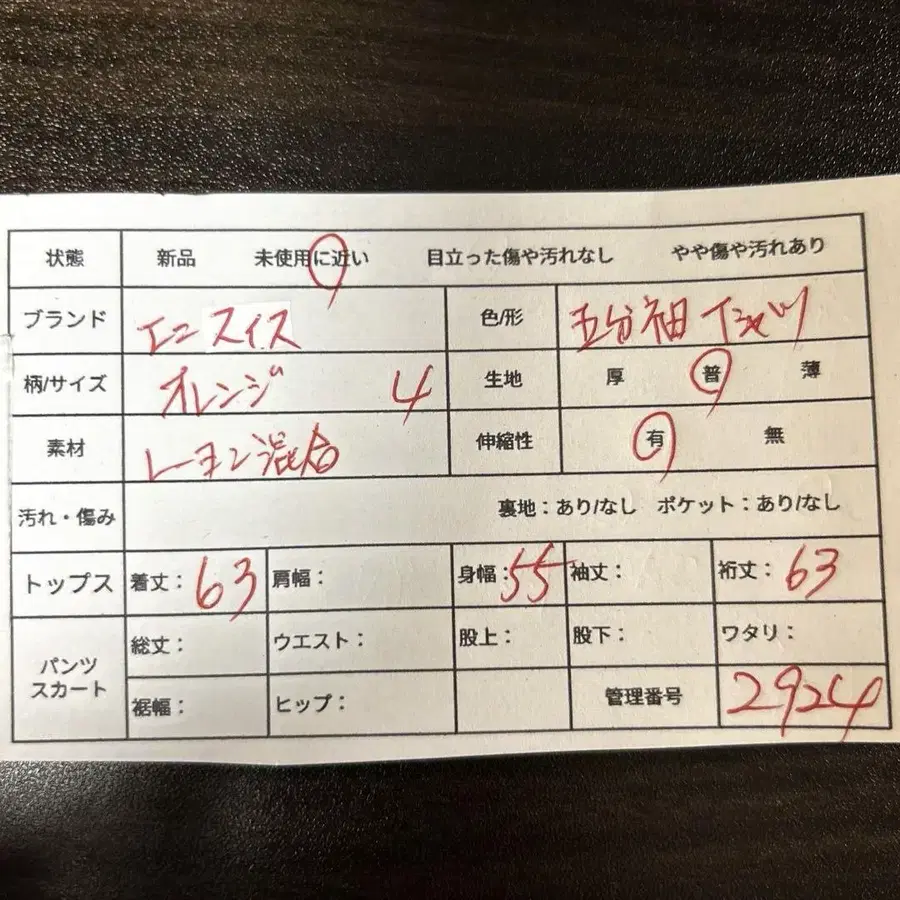 状態 新品 未使用に近い 目立った傷や汚れなし やや傷や汚れあり
ブランド エニスイス 色/形 五分袖 Tシャツ
柄/サイズ オレンジ 4 生地 厚 普 薄
素材 レーヨン混合 伸縮性 有 無
汚れ・傷み 裏地：あり/なし ポケット：あり/なし
トップス 着丈：63 肩幅： 身幅：55 袖丈： 裄丈：63
パンツ スカート 総丈： ウエスト： 股上： 股下： ワタリ：
裾幅： ヒップ： 管理番号 2924